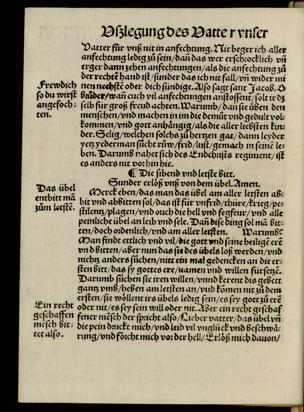 Vßlegung des Vatter vnser
Vatter für vnß nit in anfechtung. Nit beger ich aller
anfechtung ledig zů sein/ dañ das wer erschrocklich vñ
erger dann zehen anfechtungen/ als die anfechtung zů
der rechtẽ hand ist/ sunder das ich nit fall/ vñ wider mi
Frewdich
so du würst
angefoch-
ten.
nen nechstẽ oder dich sündige. Also sagt sant Jacob. O
brůder/ wañ euch vil anfechtungen anstossent/ solt ir ds
selb für groß freud achten. Warumb/ dan sie leyden den
menschen/ vnd machen jn in die demüt vnd gedult vol-
kommen/ vnd got anhängig/ als die aller liebsten kin
der. Selig/ welchen solchs zů hertzen gat/ dann leyder
yetz yederman sůcht růw/ frid/ lust/ gemach in seinẽ le
ben. Darumb nahet sich des Endchrists regiment/ ist
es anders nit vorhin hie.
¶ Die sibend vnd letste bitt.
Sunder erlöß vnß von dem übel. Amen.
Das übel
enbitt mã
zům letstẽ.
Merck eben/ das man das übel am aller letsten ab-
bit vnd abbitten sol/ das ist für vnfrid/ thüre/ krieg/ pe-
stilentz/ plagen/ vnd ouch die hell vnd fegfeur/ vnd alle
peinliche übel an leib vnd sele. Dañ dise ding sol mã bit-
ten/ doch ordenlich/ vnd am aller letsten. Warumb?
Man findt etlich vnd vil/ die gott vnd seine heiligẽ erẽ
vnd bitten/ aber nun das sie des übels loß werden/ vnd
nichtz anders sůchen/ nit ein mal gedencken an die er-
sten bitt/ das sy gottes ere/ namen vnd willen fürsetzẽ.
Darumb sůchen sie iren willen/ vnnd kerent dis gebett
gang vmb/ heben am letsten an/ vnd kömen nit zů dem
ersten/ sie wöllent irs übels ledig sein/ es sey got zů erẽ
Ein recht
geschaffen
mẽsch bit-
tet also.
oder nit/ es sey sein will oder nit. Aber ein recht geschaf
fener mẽsch der spricht also/ Lieber vatter/ das übel vñ
die pein druckt mich/ vnd leid vil vnglück vnd beschwä-
rung/ vnd förcht mich vor der hell/ Erlöß mich dauon/